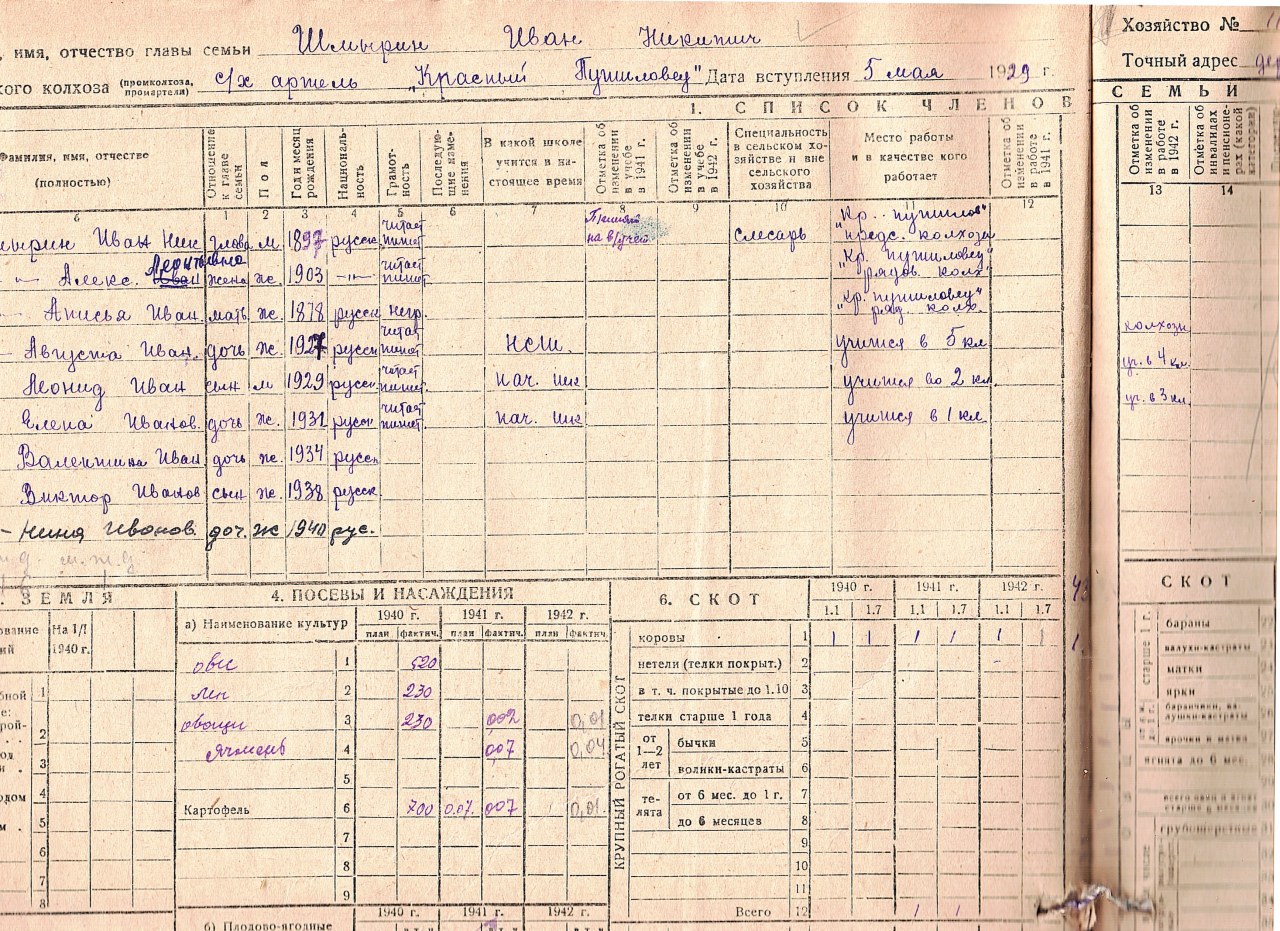 , имя, отчество главы семьи Шмырин Иван Никитич
Хозяйство №
кого колхоза (промколхоза, промартели) с/х артель „Красный Путиловец" Дата вступления 5 мая 1929 г.
Точный адрес дер
1. СПИСОК ЧЛЕНОВ СЕМЬИ
Фамилия, имя, отчество (полностью)
Отношение к главе семьи
Пол
Год и месяц рождения
Националь-ность
Грамот-ность
Последую-щие изме-нения
В какой школе учится в на-стоящее время
Отметка об изменении в учебе в 1941 г.
Отметка об изменении в учебе в 1942 г.
Специальность в сельском хо-зяйстве и вне сельского хозяйства
Место работы и в качестве кого работает
Отметка об изменении в работе в 1941 г.
Отметка об изменении в работе в 1942 г.
Отметка об инвалидах и пенсионе-рах (какой категории)
б 1 2 3 4 5 6 7 8 9 10 11 12 13 14
мырин Иван Ник глова м 1897 русск читает пишет на в/учет слесарь „Кр. путилов" предс. колхоза
— Алекс. Иван Леонтьевна жена ж. 1903 —"— читает пишет „Кр. путиловец" рядов. колх.
— Анисья Иван. мать ж. 1878 русск негр. „Кр. путиловец" ряд. колх.
— Августа Иван. дочь ж. 1927 русск читает пишет нсш. учится в 5 кл колхозн
Леонид Иван сын м 1929 русск. читает пишет нач. шк учится во 2 кл. уч. в 4 кл.
Елена Иванов. дочь ж. 1931 русск читает пишет нач. шк учится в 1 кл. уч. в 3 кл.
Валентина Иван дочь ж. 1934 русск
Виктор Иванов сын ж. 1938 русск
— Нина Иванов. доч. ж 1940 рус.
м.ж.д
. ЗЕМЛЯ
4. ПОСЕВЫ И НАСАЖДЕНИЯ
6. СКОТ
1940 г. 1941 г. 1942 г. 43
1.1 1.7 1.1 1.7 1.1 1.7
СКОТ
На 1/I 1940 г.
а) Наименование культур
1940 г. 1941 г. 1942 г.
план фактич. план фактич. план фактич.
овес 1 520
лен 2 230
овощи 3 230 002 0,01
ячмень 4 007 0,04
5
Картофель 6 700 0.07. 007 0,01.
7
8
9
1940 г. 1941 г. 1942 г.
б) Плодово-ягодные
1
2
3
4
5
6
7
8
КРУПНЫЙ РОГАТЫЙ СКОТ
коровы 1 1 1 1 1 1 1 1.
нетели (телки покрыт.) 2 -
в т. ч. покрытые до 1.10 3
телки старше 1 года 4
от 1—2 лет
бычки 5
волики-кастраты 6
те-лята
от 6 мес. до 1 г. 7
до 6 месяцев 8
9
10
11
Всего 12 1 1
старше 1 г.
бараны
валухи-кастраты
матки
ярки
баранчики, ва-лушки-кастраты
ярочки и матки
ягнята до 6 мес.
грубошерстные